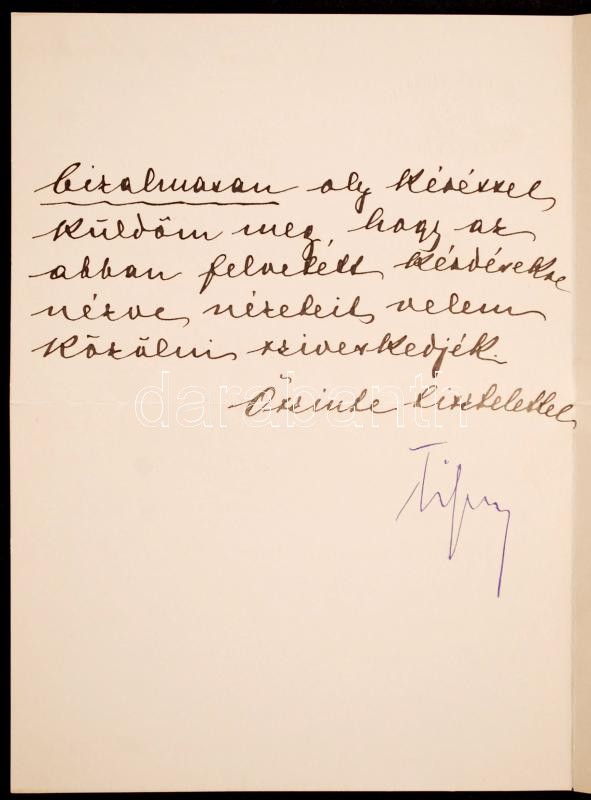 bizalmasan oly kéréssel
küldöm meg, hogy az
abban felvetett kérdésekre
nézve nézeteit velem
közölni sziveskedjék.
Őszinte tisztelettel
Tisza
darabanth